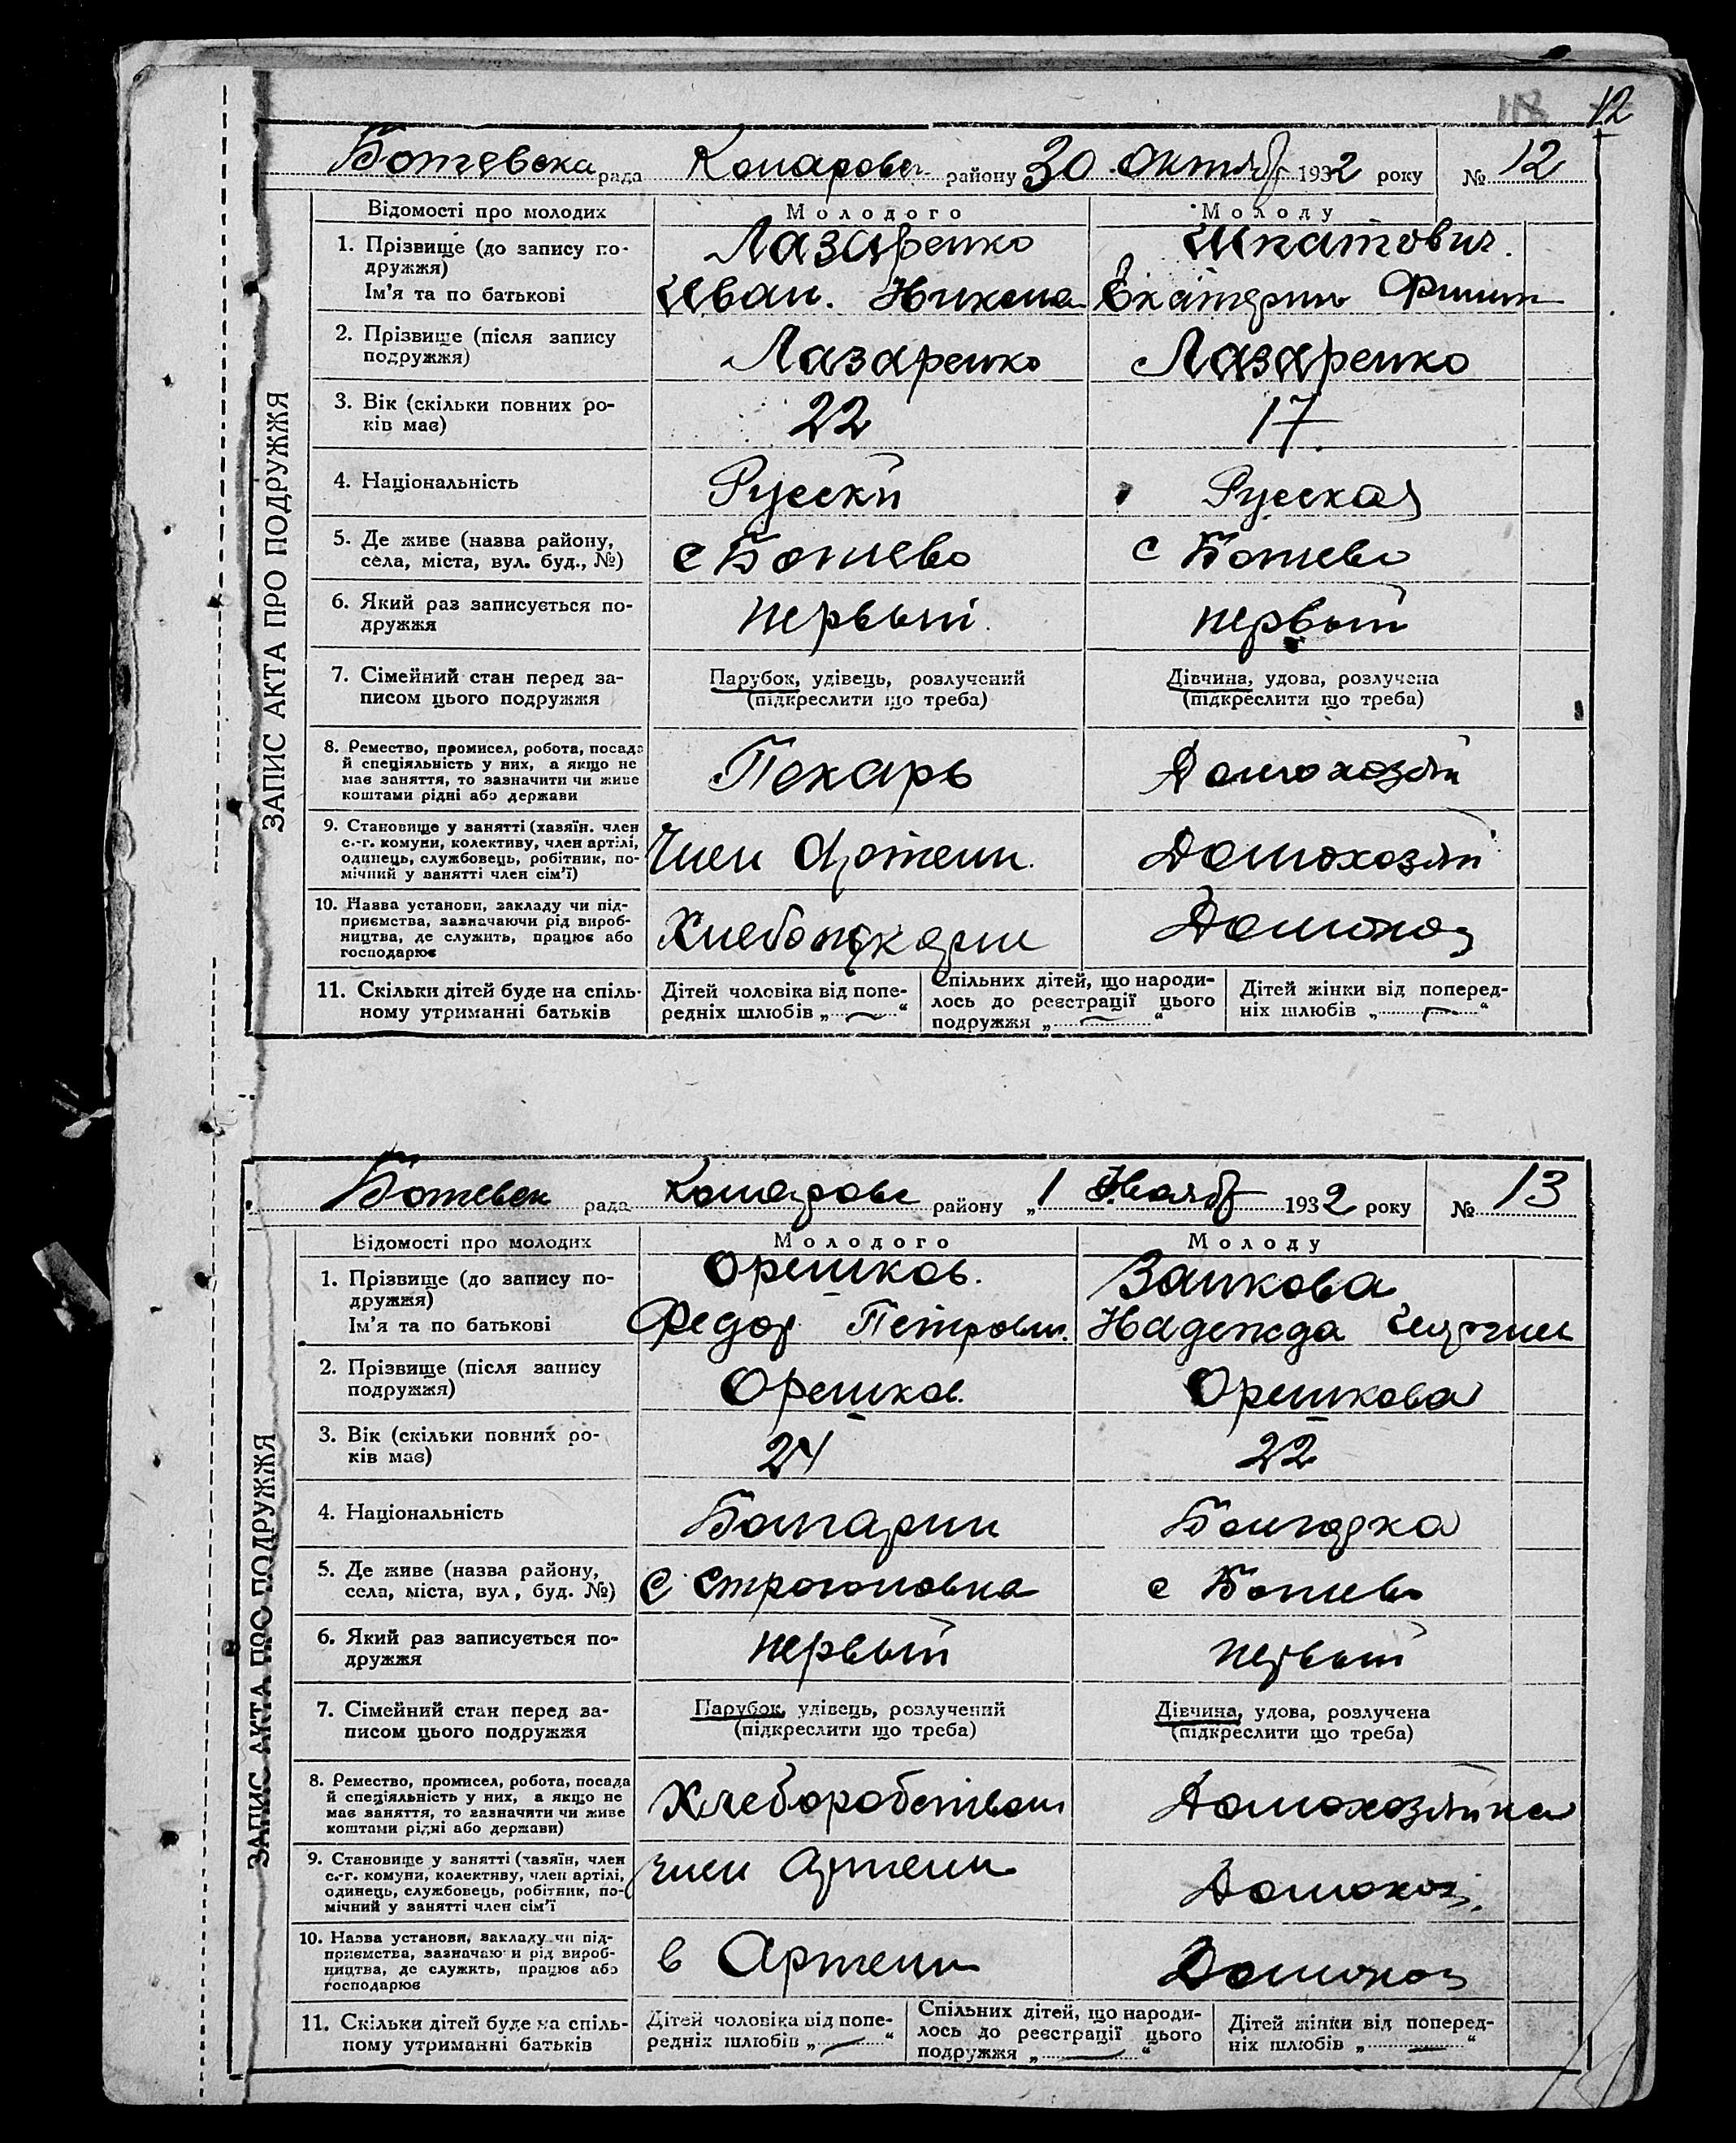 118 12
Ботевска рада Комаровск району 30 Октяб 1932 року № 12
ЗАПИС АКТА ПРО ПОДРУЖЖЯ
Відомості про молодих Молодого Молоду
1. Прізвище (до запису по- Лазаренко Игнатович.
дружжя)
Ім'я та по батькові Иван. Екатерин Филип
2. Прізвище (після запису Лазаренко Лазаренко
подружжя)
3. Вік (скільки повних ро- 22 17
ків має)
4. Національність Русски Русская
5. Де живе (назва району, с Ботиево с Ботиево
села, міста, вул. буд., №)
6. Який раз записується по- первый первый
дружжя
7. Сімейний стан перед за- Парубок, удівець, розлучений Дівчина, удова, розлучена
писом цього подружжя (підкреслити що треба) (підкреслити що треба)
8. Ремество, промисел, робота, посада Пекарь Домохозяй
й спеціяльність у них, а якщо не
має заняття, то зазначити чи живе
коштами рідні або держави
9. Становище у занятті (хазяїн. член Член Артели. Домохозяй
с.-г. комуни, колективу, член артілі,
одинець, службовець, робітник, по-
мічний у занятті член сім'ї)
10. Назва установи, закладу чи під- Хлебопекарни Домохоз
приємства, зазначаючи рід вироб-
ництва, де служить, працює або
господарює
11. Скільки дітей буде на спіль- Дітей чоловіка від попе- Спільних дітей, що народи- Дітей жінки від поперед-
ному утриманні батьків редніх шлюбів „ — “ лось до реєстрації цього ніх шлюбів „ — “
подружжя „ — “
Ботевск рада Комаровс району „1 Ноябр 1932 року № 13
ЗАПИС АКТА ПРО ПОДРУЖЖЯ
Відомості про молодих Молодого Молоду
1. Прізвище (до запису по- Орешков. Занкова
дружжя)
Ім'я та по батькові Федор Петрович. Надежда
2. Прізвище (після запису Орешков. Орешкова
подружжя)
3. Вік (скільки повних ро- 24 22
ків має)
4. Національність Болгарин Болгарка
5. Де живе (назва району, с Строгоновка с Ботиево
села, міста, вул, буд. №)
6. Який раз записується по- первый первый
дружжя
7. Сімейний стан перед за- Парубок, удівець, розлучений Дівчина, удова, розлучена
писом цього подружжя (підкреслити що треба) (підкреслити що треба)
8. Ремество, промисел, робота, посада Хлеборобством Домохозяйка
й спеціяльність у них, а якщо не
має заняття, то зазначити чи живе
коштами рідні або держави)
9. Становище у занятті (хазяїн, член член Артели Домохоз.
с.-г. комуни, колективу, член артілі,
одинець, службовець, робітник, по-
мічний у занятті член сім'ї
10. Назва установи, закладу чи під- в Артели Домохоз
приємства, зазначаючи рід вироб-
ництва, де служить, працює або
господарює
11. Скільки дітей буде на спіль- Дітей чоловіка від попе- Спільних дітей, що народи- Дітей жінки від поперед-
ному утриманні батьків редніх шлюбів „ — “ лось до реєстрації цього ніх шлюбів „ — “
подружжя „ — “